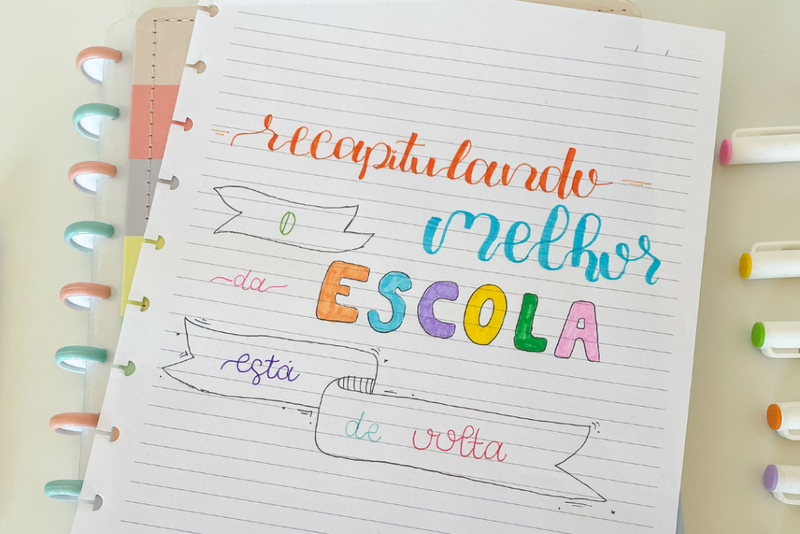 recapitulando
O melhor
da ESCOLA
está
de volta